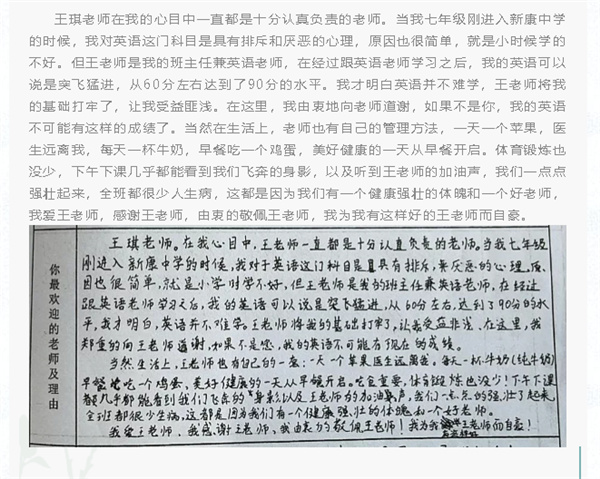 王琪老师在我的心目中一直都是十分认真负责的老师。当我七年级刚进入新康中学
的时候，我对英语这门科目是具有排斥和厌恶的心理，原因也很简单，就是小时候学的
不好。但王老师是我的班主任兼英语老师，在经过跟英语老师学习之后，我的英语可以
说是突飞猛进，从60分左右达到了90分的水平。我才明白英语并不难学，王老师将我
的基础打牢了，让我受益匪浅。在这里，我由衷地向老师道谢，如果不是你，我的英语
不可能有这样的成绩了。当然在生活上，老师也有自己的管理方法，一天一个苹果，医
生远离我，每天一杯牛奶，早餐吃一个鸡蛋，美好健康的一天从早餐开启。体育锻炼也
没少，下午下课几乎都能看到我们飞奔的身影，以及听到王老师的加油声，我们一点点
强壮起来，全班都很少人生病，这都是因为我们有一个健康强壮的体魄和一个好老师，
我爱王老师，感谢王老师，由衷的敬佩王老师，我为我有这样好的王老师而自豪。
你最欢迎的老师及理由
王琪老师。在我心目中，王老师一直都是十分认真负责的老师。当我七年级
刚进入新康中学的时候，我对于英语这门科目是具有排斥，和厌恶的心理，原
因也很简单，就是小学时学不好，但王老师是我的班主任兼英语老师，在经过
跟英语老师学习之后，我的英语可以说是突飞猛进，从60分左右，达到了90分的水
平，我才明白，英语并不难学。王老师将我的基础打牢了，让我受益非浅，在这里，我
郑重的向王老师道谢，如果不是您，我的英语不可能有现在的成绩。
当然生活上，王老师也有自己的一套：一天一个苹果医生远离爸。每天一杯牛奶(纯牛奶)
早餐吃一个鸡蛋，美好健康的一天从早餐开启。吃食重要，体育锻炼也没少！下午下课
都几乎都能看到我们飞奔的身影以及王老师的加油声，我们一点点的强壮了起来
全班都很少生病，这都是因为我们有一个健康强壮的体魄和一个好老师。
我爱王老师、我感谢王老师、我由衷的敬佩王老师！我为我王老师而自豪！